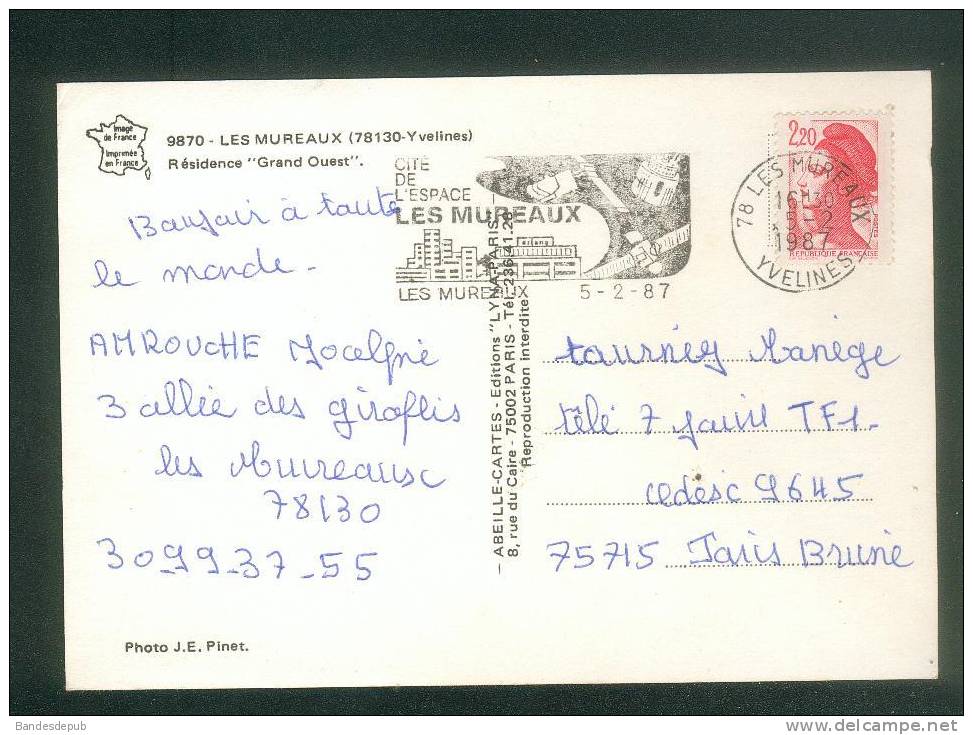 Image
de France
Imprimée
en France
9870 - LES MUREAUX (78130-Yvelines)
Résidence "Grand Ouest".
CITÉ
DE
L'ESPACE
LES MUREAUX
LES MUREAUX 5-2-87
2,20
RÉPUBLIQUE FRANÇAISE
78 LES MUREAUX
16H30
5-2
1987
YVELINES
Bonjour à toute
le monde -
AMROUCHE Jocelyne
3 allée des giroflés
les Mureause
78130
30-99-37-55
Photo J.E. Pinet.
ABEILLE-CARTES - Editions "LYNA-PARIS"
8, rue du Caire - 75002 PARIS - Tél. 236.41.28
Reproduction interdite
tournez Manège
télé 7 jours TF1.
cedesc 9645
75715 Paris Brune
Bandesdepub
www.delcampe.net